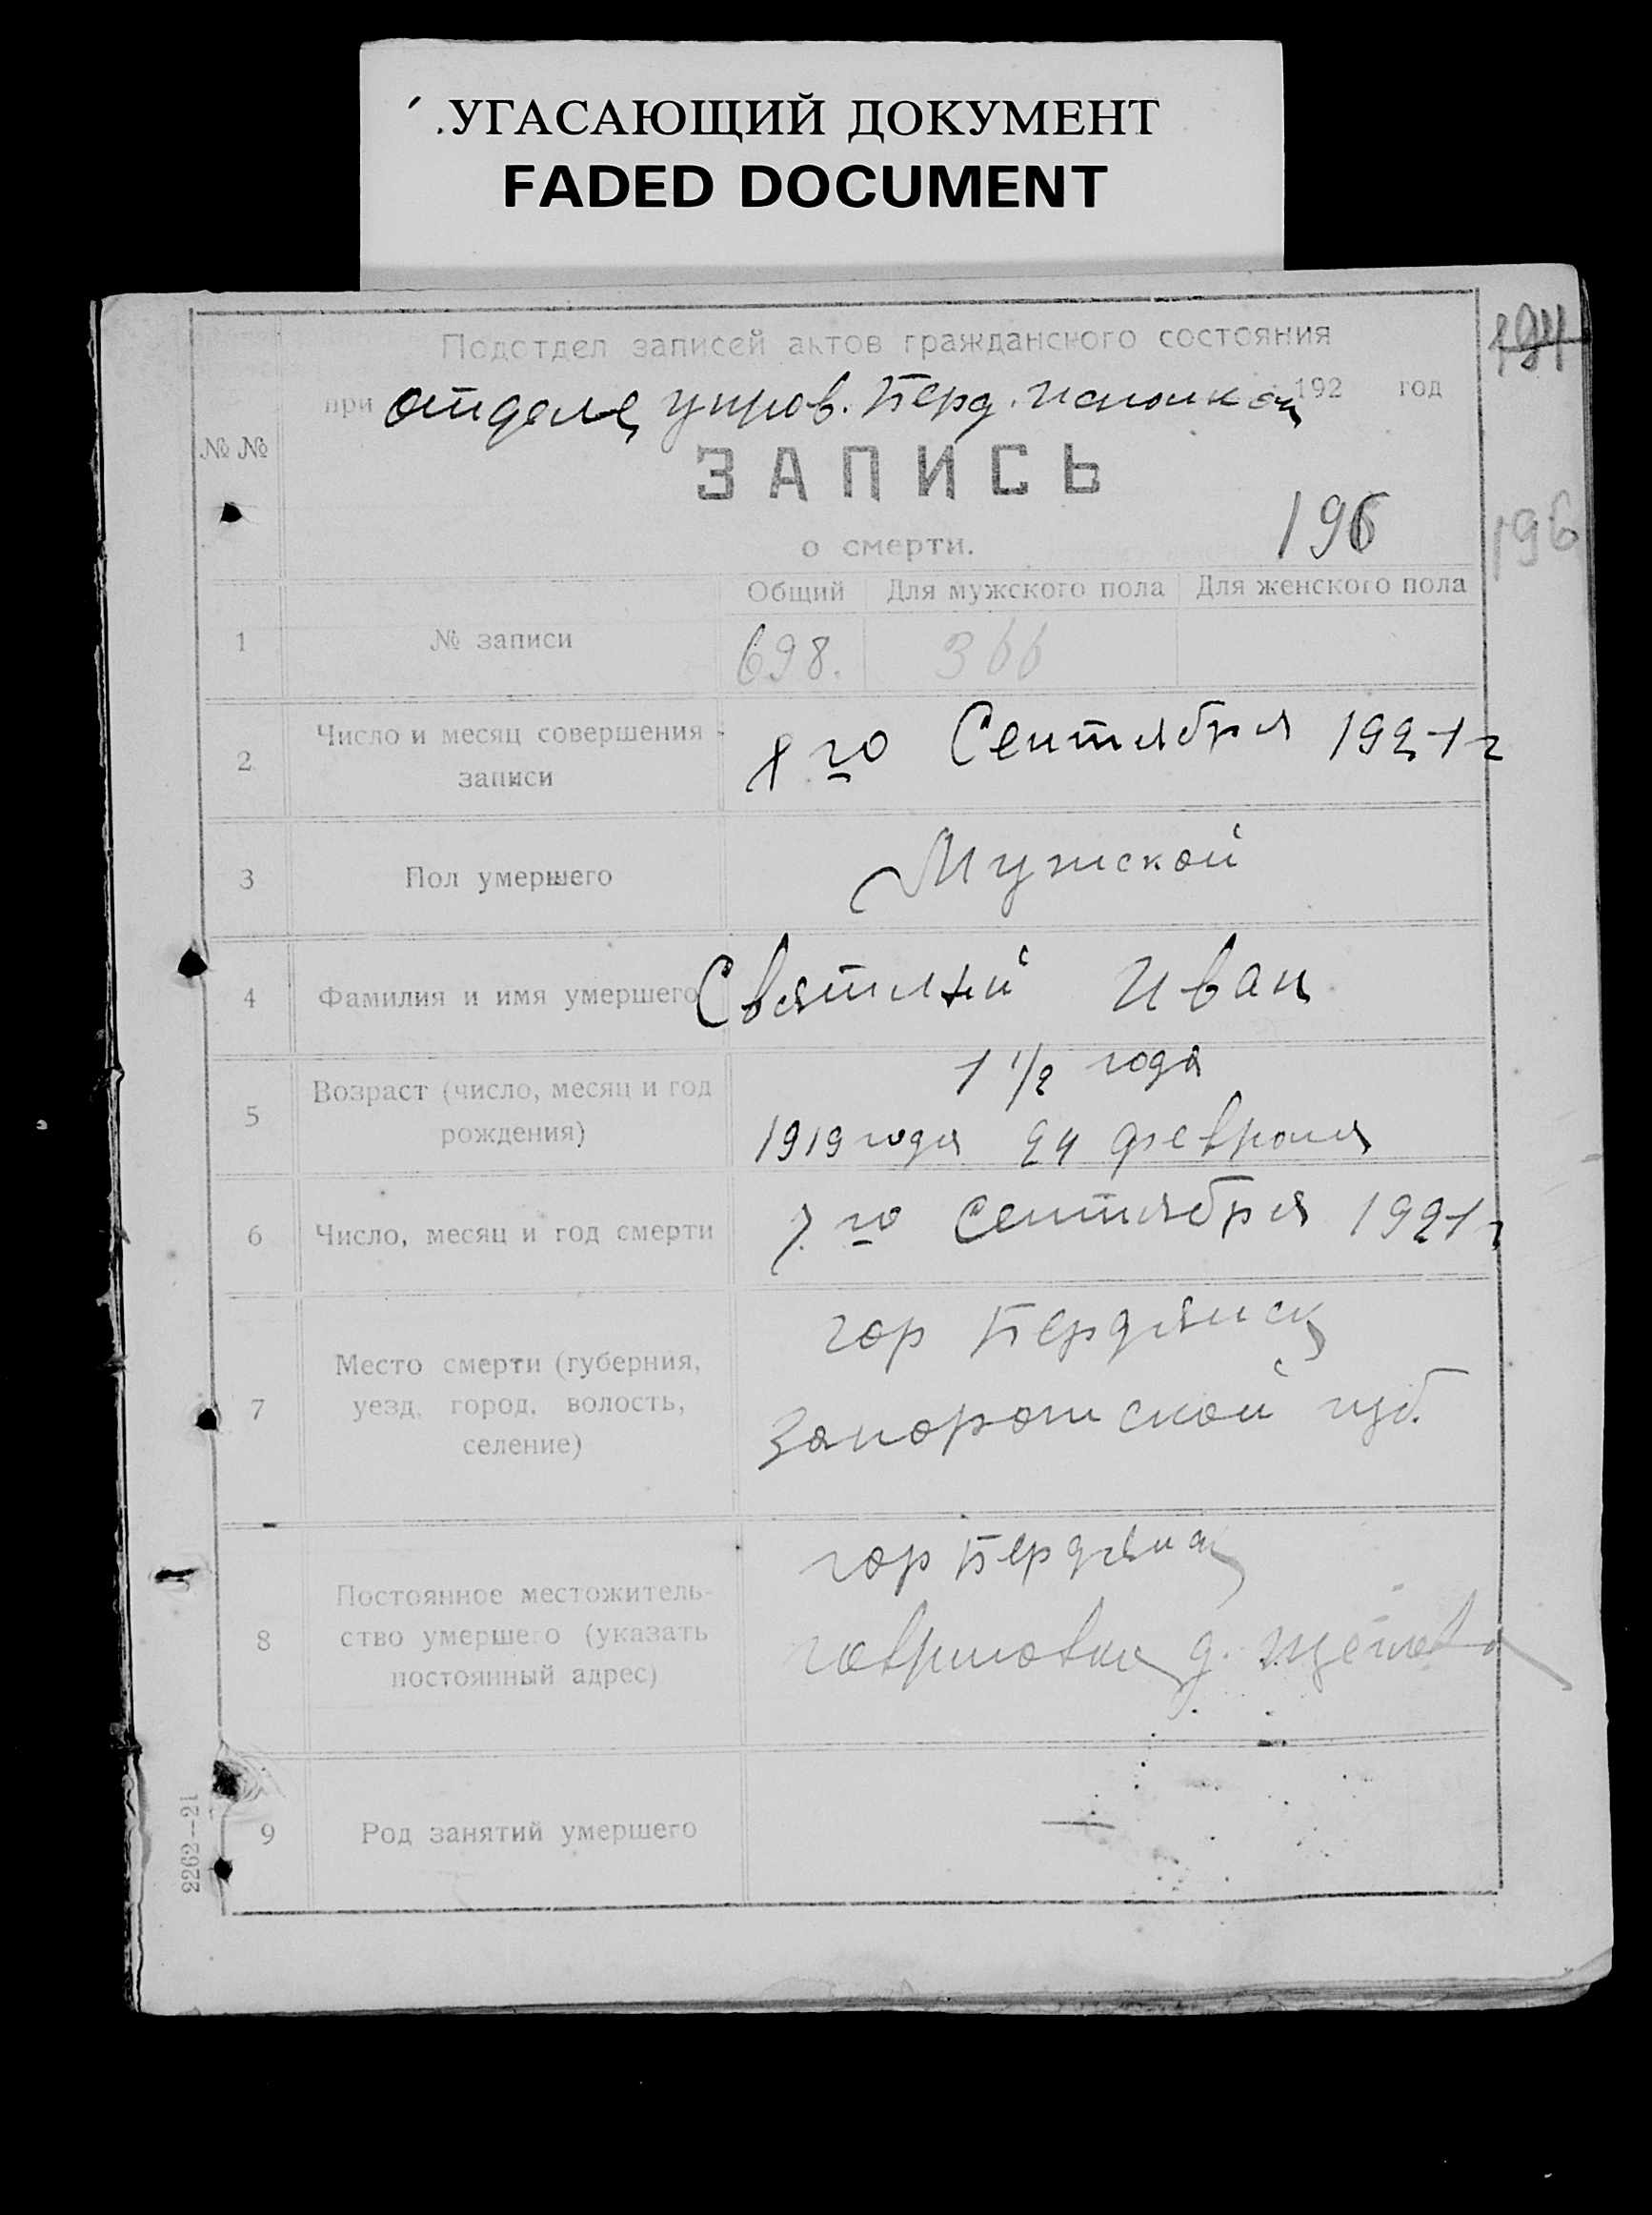 УГАСАЮЩИЙ ДОКУМЕНТ
FADED DOCUMENT
Подотдел записей актов гражданского состояния
при отделе управ. Берд. исполком 192 год
194
№ №
ЗАПИСЬ
о смерти.
196
196
Общий Для мужского пола Для женского пола
1 № записи 698. 366
2 Число и месяц совершения записи 8 го Сентября 1921 г
3 Пол умершего Мужской
4 Фамилия и имя умершего Иван
5 Возраст (число, месяц и год рождения) 1 1/2 года
1919 года 24 февраля
6 Число, месяц и год смерти 7 го Сентября 1921 г
7 Место смерти (губерния, уезд, город, волость, селение) гор Бердянск
Запорожской губ.
8 Постоянное местожитель-
ство умершего (указать
постоянный адрес) гор Бердянск
д.
9 Род занятий умершего —
2262—21